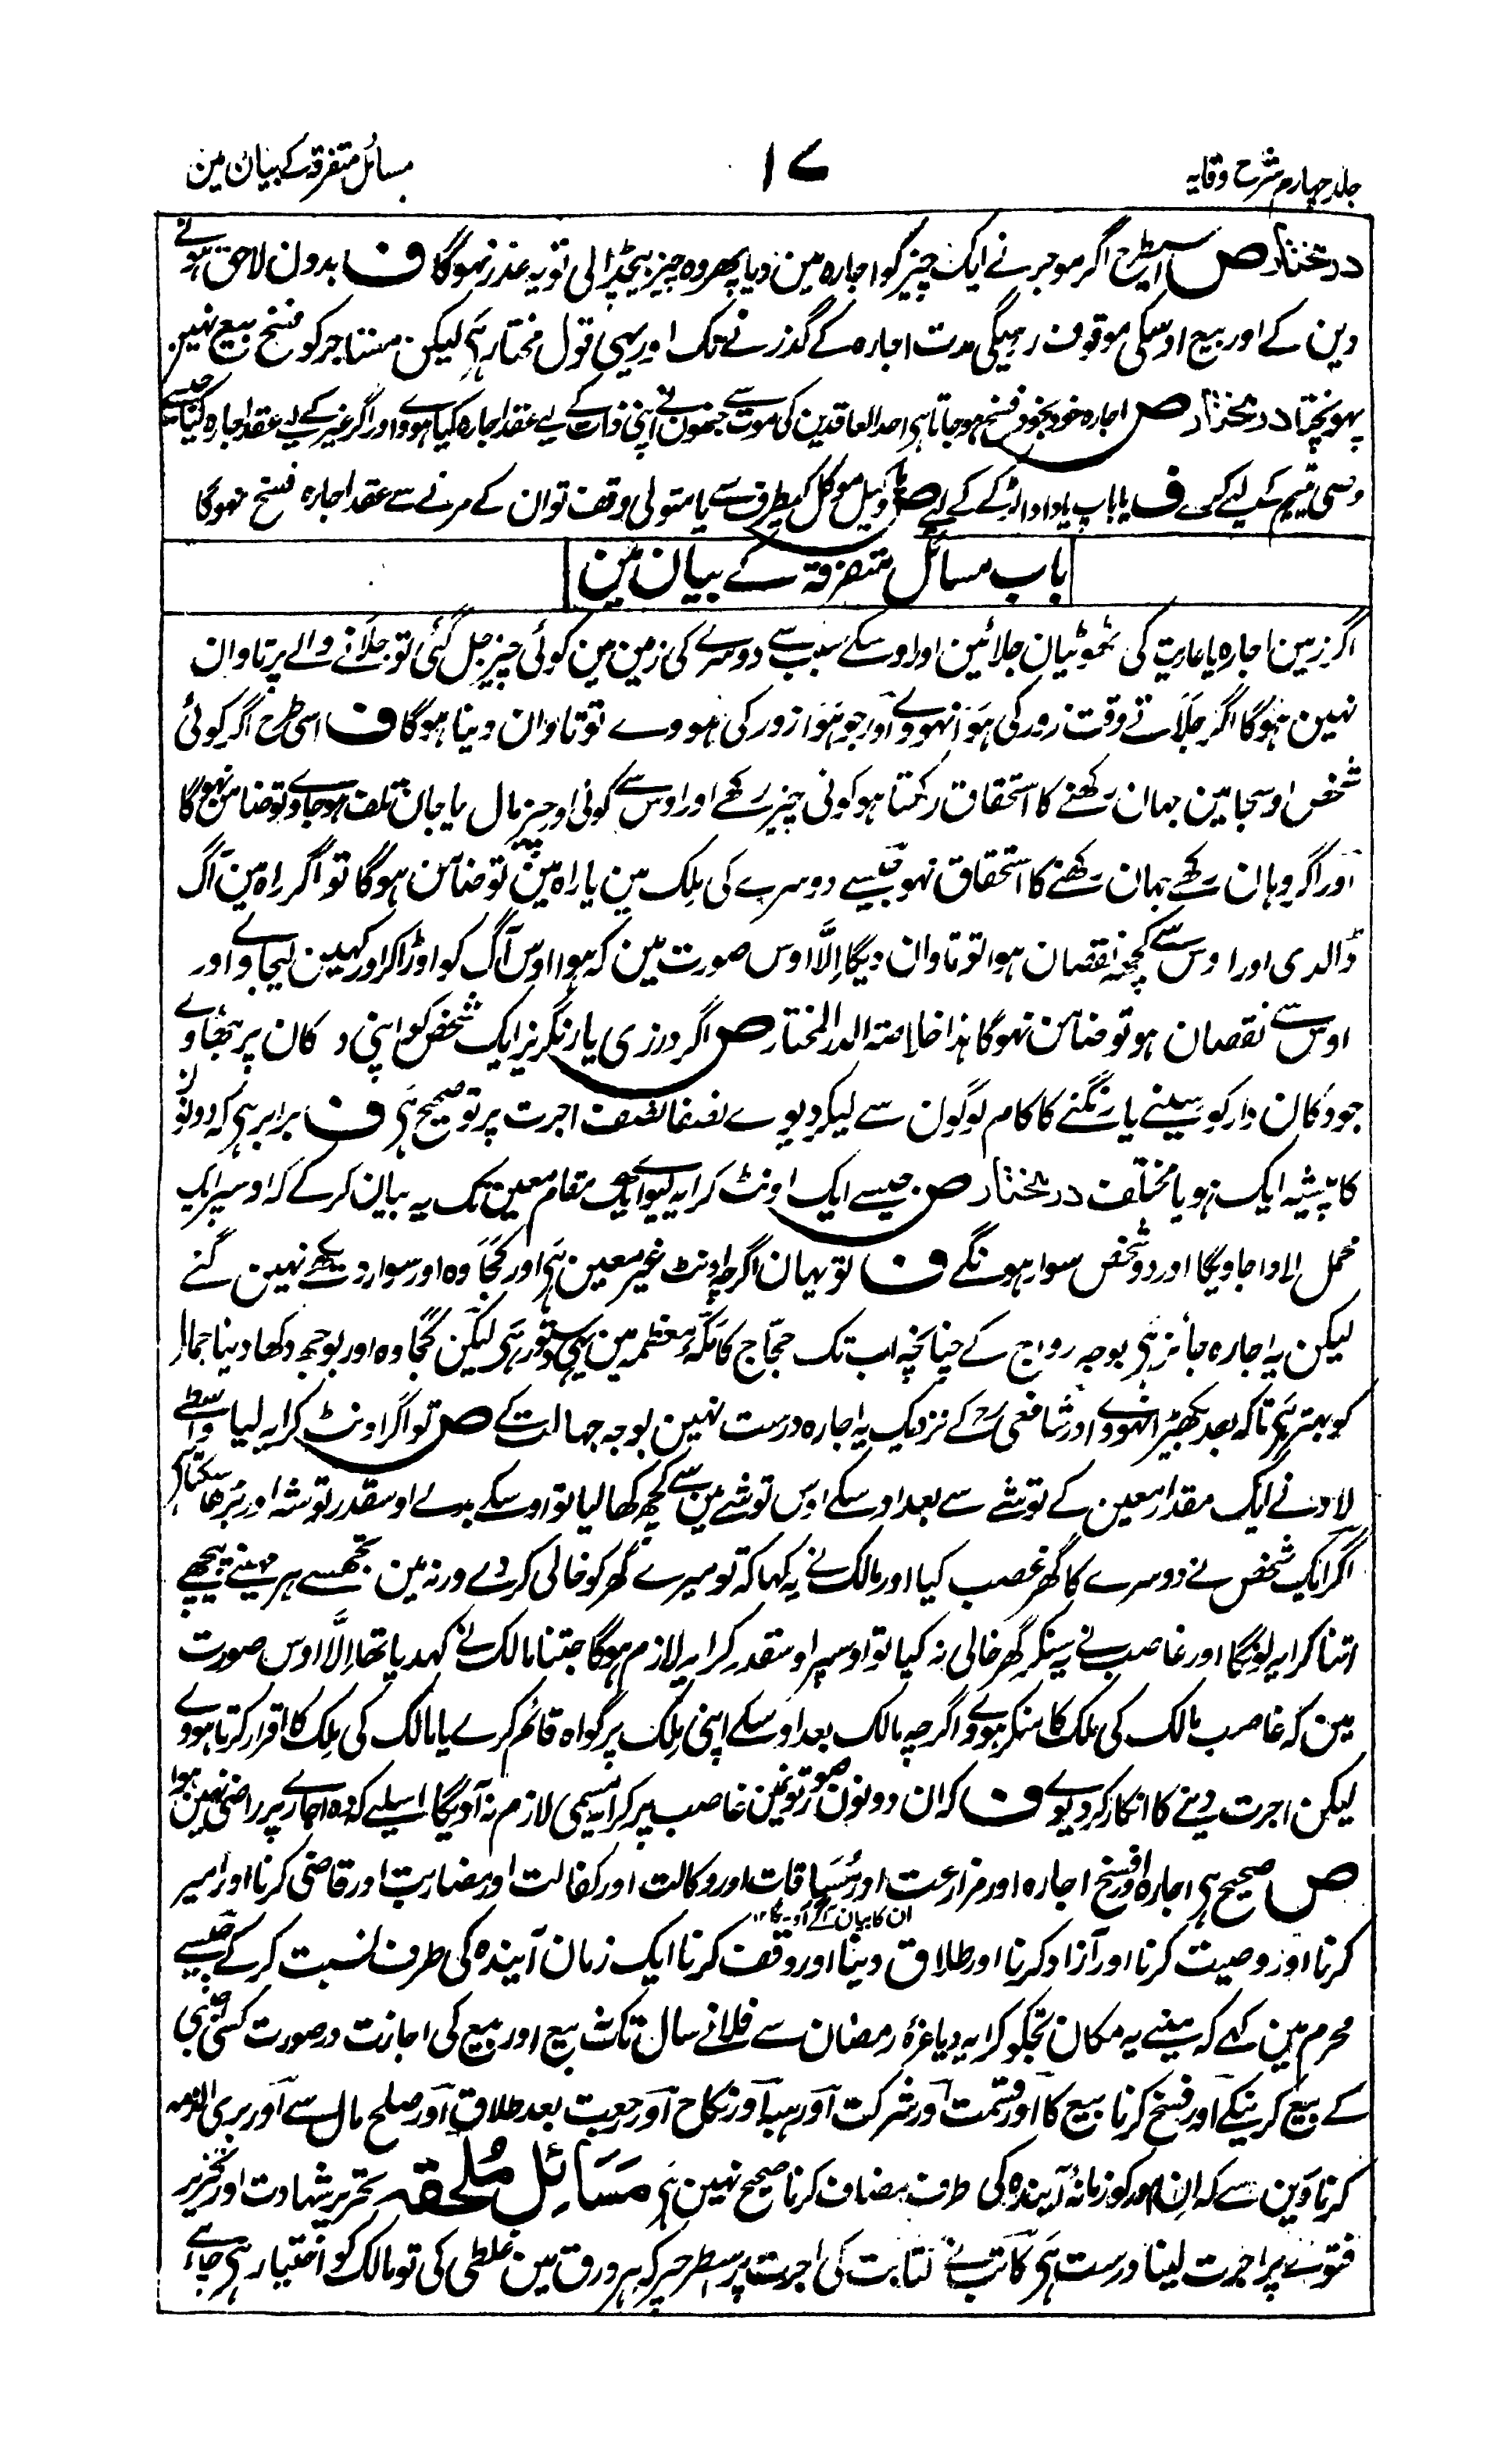 جلد چہارم شرح وقایہ
۱۷
مسائل متفرقہ کے بیان مین
درمختار ص اسیطرح اگر موجر نے ایک چیز کو اجارہ مین دیا پھر وہ چیز بیچڈالی تو یہ عذر نہوگا ف بدون لاحق ہونے
دین کے اور بیع اوسکی موقوف رہیگی مدت اجارہ کے گذرنے تک اور یہی قول مختار ہی لیکن مستاجر کو فسخ بیع نہین
پہونچتا درمختار ص اجارہ خود بخود فسخ ہوجاتا ہی احد العاقدین کی موت سے جنھون نے اپنی ذات کے لیے عقد اجارہ کیا ہووے اور اگر غیر کے لیے عقد اجارہ کیا جیسے
وصی یتیم کے لیے کرے ف یا باپ یا دادا لڑکے کے لیے ص یا وکیل موکل کیطرف سے یا متولی وقف تو ان کے مرنے سے عقد اجارہ فسخ نہوگا
باب مسائل متفرقہ کے بیان مین
اگر زمین اجارہ یا عاریت کی ٹھوٹیان جلائین اور اوسکے سبب سے دوسرے کی زمین مین کوئی چیز جل گئی تو جلانے والے پر تاوان
نہین ہوگا اگر جلاتے وقت زور کی ہوا نہووے اور جو ہوا زور کی ہووے تو تاوان دینا ہوگا ف اسی طرح اگر کوئی
شخص اوسجا مین جہان رکھنے کا استحقاق رکھتا ہو کوئی چیز رکھے اور اوس سے کوئی اور چیز مال یا جان تلف ہوجاوے تو ضامن نہوگا
اور اگر وہان رکھے جہان رکھنے کا استحقاق نہو جیسے دوسرے کی ملک مین یا راہ مین تو ضامن ہوگا تو اگر راہ مین آگ
ڈالدی اور اوس سے کچھ نقصان ہوا تو تاوان دیگا الا اوس صورت مین کہ ہوا اوس آگ کو اوڑا کر اور کہین لیجاوے اور
اوس سے نقصان ہو تو ضامن نہوگا ہذا خلاصۃ الدر المختار ص اگر درزی یا رنگریز ایک شخص کو اپنی دکان پر بٹھاوے
جو دکان دار کو سینے یا رنگنے کا کام لوگون سے لیکر دیوے نصفا نصف اجرت پر تو صحیح ہی ف برابر ہی کہ دونون
کا پیشہ ایک ہو یا مختلف درمختار ص جیسے ایک اونٹ کرایہ لیوے ایک مقام معین تک یہ بیان کرکے کہ اوسپر ایک
محمل لادا جاویگا اور دو شخص سوار ہونگے ف تو یہان اگرچہ اونٹ غیر معین ہی اور کجاوہ اور سوار دیکھے نہین گئے
لیکن یہ اجارہ جائز ہی بوجہ رواج کے چنانچہ اب تک حجاج کا مکہ معظمہ مین یہی دستور ہی لیکن کجاوہ اور بوجھ دکھا دینا جمال
کو بہتر ہی تاکہ بعد بکھیڑا نہووے اور شافعی رح کے نزدیک یہ اجارہ درست نہین بوجہ جہالت کے ص تو اگر اونٹ کرایہ لیا واسطے
لادنے ایک مقدار معین کے توشے سے بعد اوسکے اوس توشے مین سے کچھ کھا لیا تو اوسکے بدلے اوسقدر توشہ اور بڑھا سکتا ہی
اگر ایک شخص نے دوسرے کا گھر غصب کیا اور مالک نے یہ کہا کہ تو میرے گھر کو خالی کردے ورنہ مین تجھسے ہر مہینے پیچھے
اتنا کرایہ لونگا اور غاصب نے یہ سنکر گھر خالی نہ کیا تو اوسپر اوسقدر کرایہ لازم ہوگا جتنا مالک نے کہدیا تھا الا اوس صورت
مین کہ غاصب مالک کی ملک کا منکر ہووے اگرچہ مالک بعد اوسکے اپنی ملک پر گواہ قائم کرے یا مالک کی ملک کا اقرار کرتا ہووے
لیکن اجرت دینے کا انکار کردیوے ف کہ ان دونون صورتونمین غاصب پر کرایہ مسمی لازم نہ آویگا اسلیے کہ وہ اجارے پر راضی نہین ہوا
ص صحیح ہی اجارہ اور فسخ اجارہ اور مزارعت اور مساقات اور وکالت اور کفالت اور مضاربت اور قاضی کرنا اور امیر
ان کا بیان آگے آویگا ۱۲
کرنا اور وصیت کرنا اور آزاد کرنا اور طلاق دینا اور وقف کرنا ایک زمان آیندہ کی طرف نسبت کرکے جیسے
محرم مین کہے کہ مینے یہ مکان تجکو کرایہ دیا غرۂ رمضان سے فلانے سال تک نہ بیع اور بیع کی اجازت در صورت کسی اجنبی
کے بیع کرینکے اور فسخ کرنا بیع کا اور قسمت اور شرکت اور ہبہ اور نکاح اور رجعت بعد طلاق اور صلح مال سے اور بری الذمہ
کرنا دین سے کہ ان امور کو زمانۂ آیندہ کی طرف مضاف کرنا صحیح نہین ہی مسائل ملحقہ تحریر شہادت اور تحریر
فتوے پر اجرت لینا درست ہی کاتب نے کتابت کی اجرت پر اسطرح پر کہ ہر ورق مین غلطی کی تو مالک کو اختیار ہی چاہے